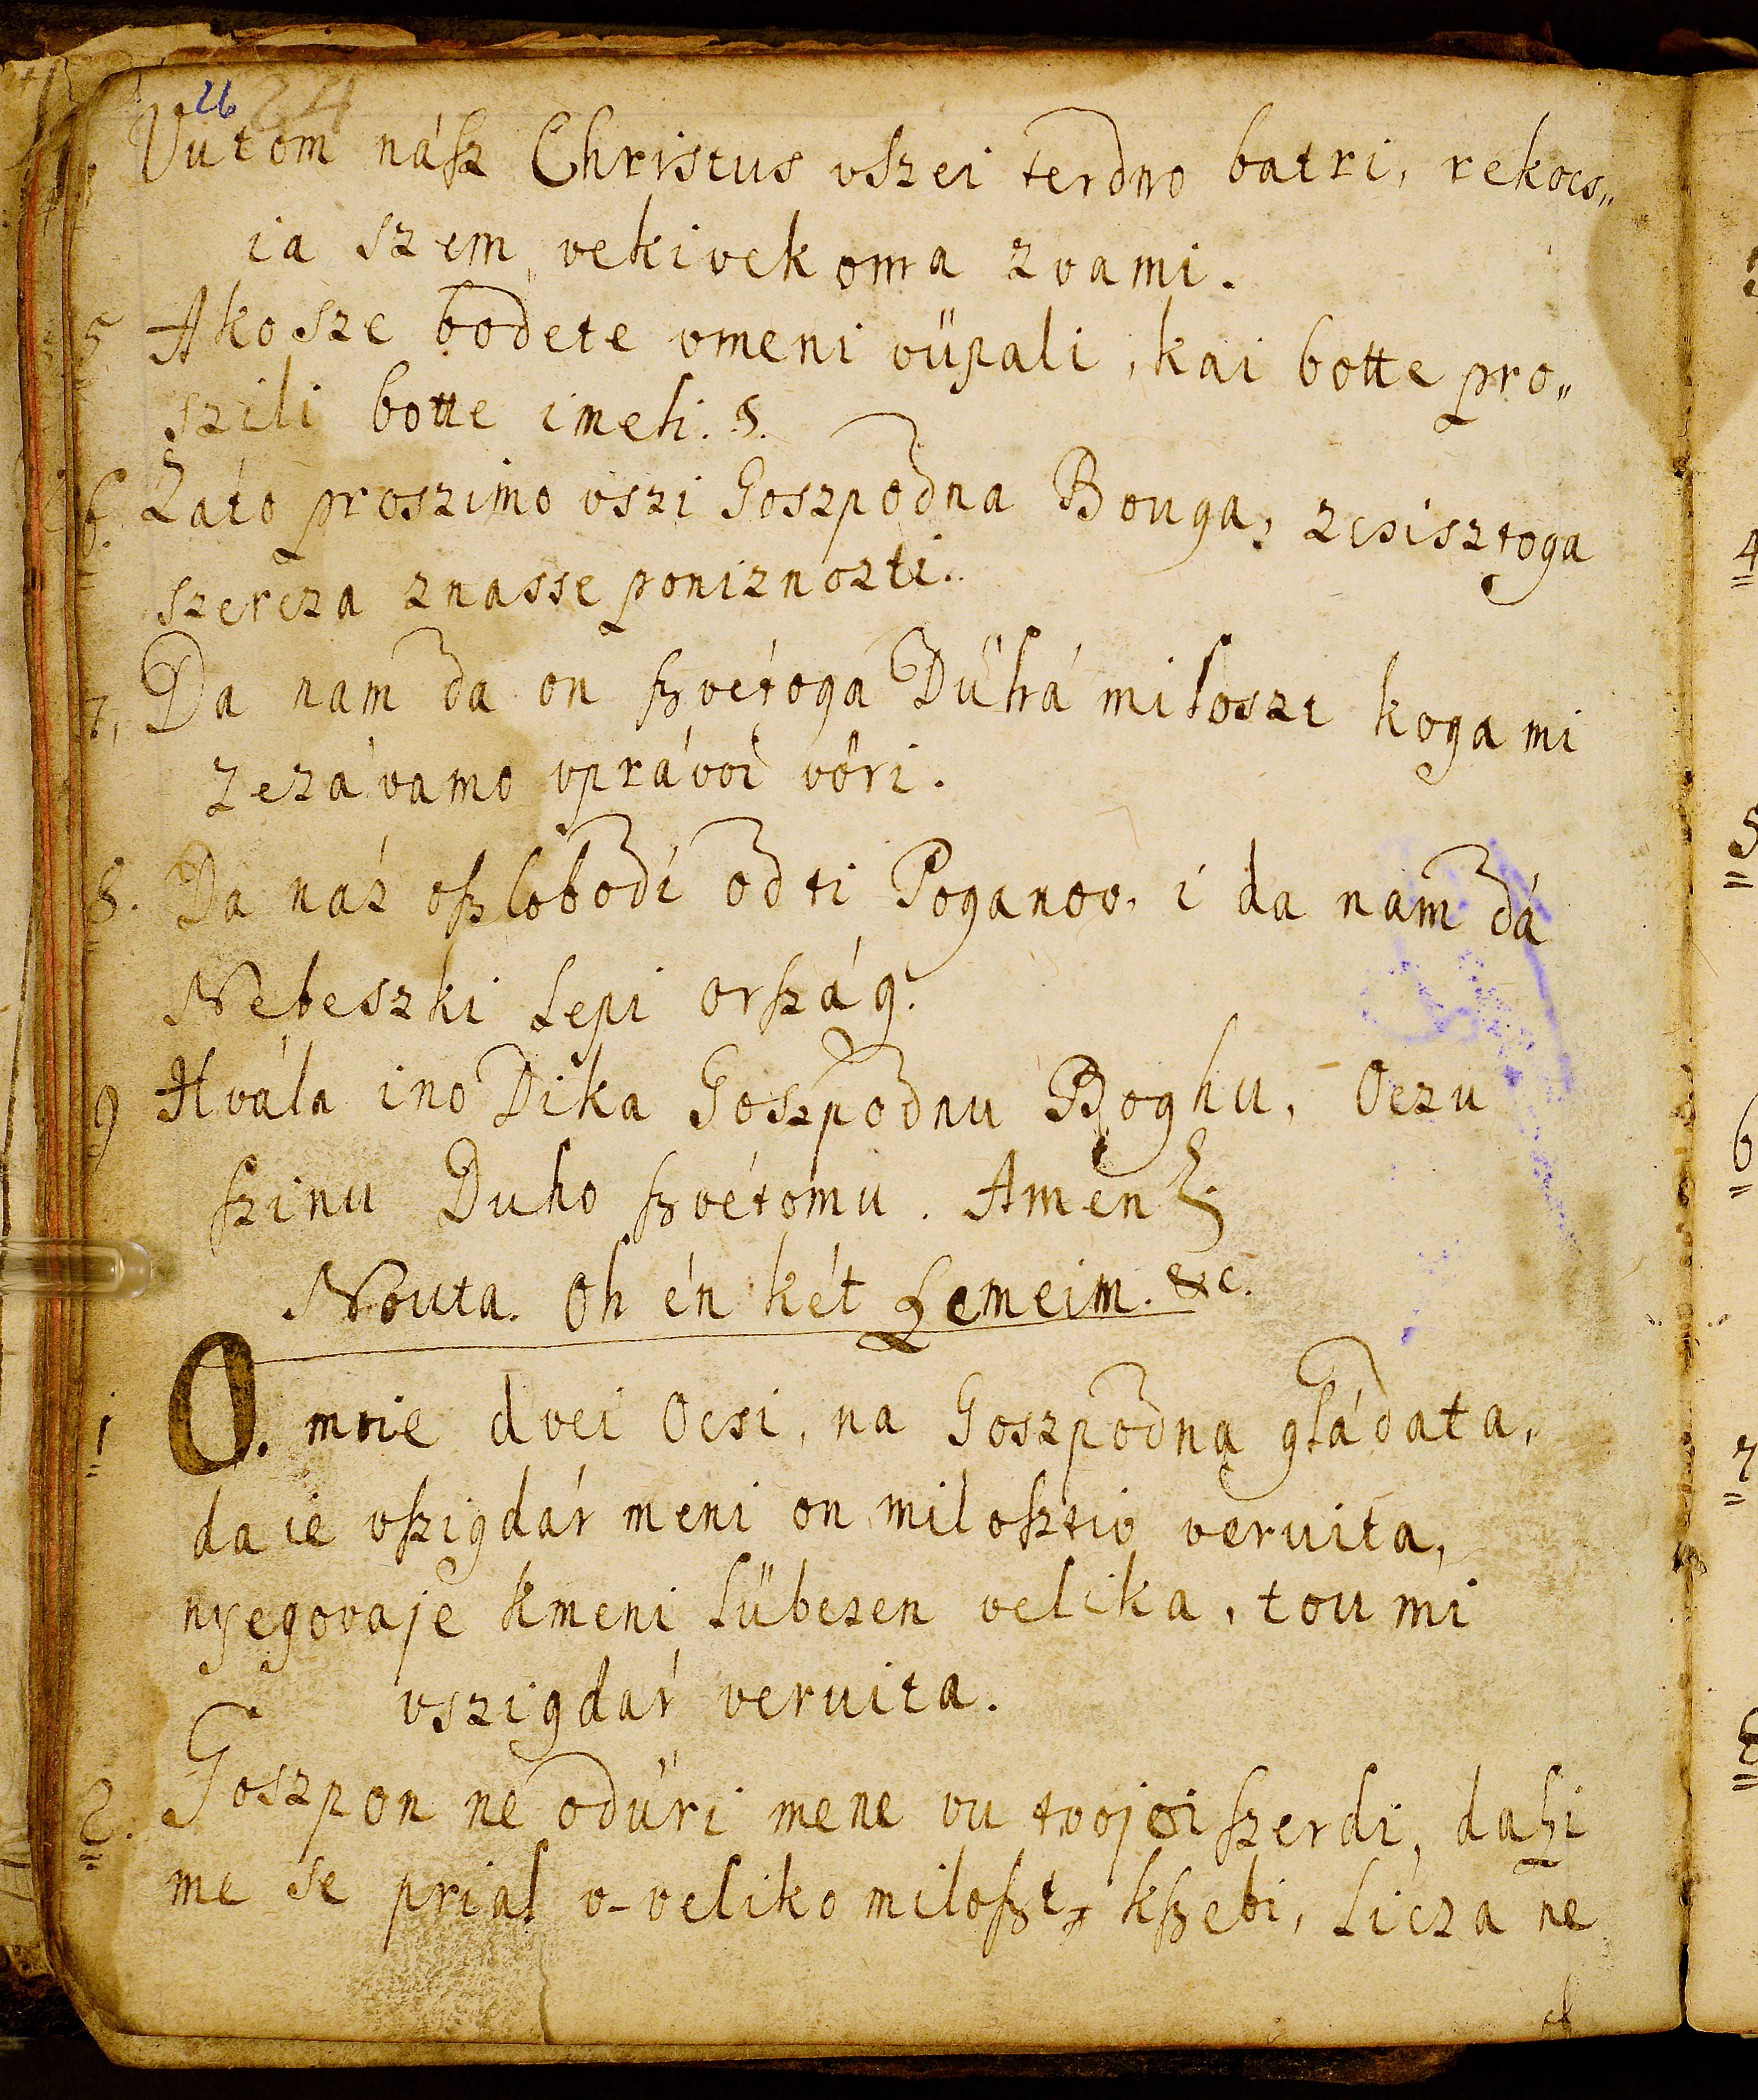 26 24
Vutom nász Christus vszei terdno batri, rekocs„
ia szem vekivekoma zvami.
5 Akosze bodete vmeni vüpali, kai botte pro„
szili botte imeli. 8.
6. Záto proszimo vszi Goszpodna Bouga, zcsisztoga
szercza znasse poniznozti.
7, Da nam da on szvétoga Dűhá miloszt koga mi
zezávamo vprávoi vöri.
8. Da náz oszlobodi od ti Poganov, i da nam dá
Nebeszki Lepiország.
9 Hvála ino Dika Goszpodnu Boghu, Oczu
szinu Duho szvétomu. Amen
Nouta. Oh én két Szemeim. &c.
1 O. moie dvei Ocsi, na Goszpodna gládata,
da ie vszigdár meni on milosztiv veruita,
nyegovaje kmeni Lübezen velika, tou mi
vszigdár veruita.
2. Goszpon ne odűri mene vu tvojoi szerdi, daszi
me se prial v-veliko miloszt kszebi, Licza ne